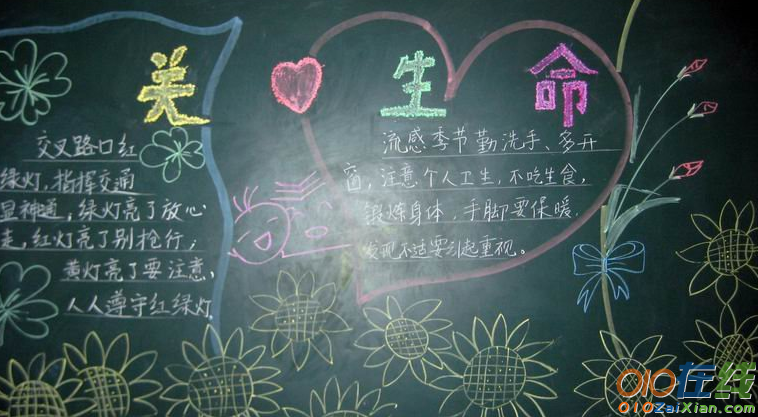 关生命
交叉路口红
绿灯,指挥交通
显神通,绿灯亮了放心
走,红灯亮了别抢行;
黄灯亮了要注意、
人人遵守红绿灯
流感季节勤洗手、多开
窗,注意个人卫生,不吃生食,
锻炼身体,手脚要保暖.
发现不适要引起重视。
010在线
010ZaiXian.com